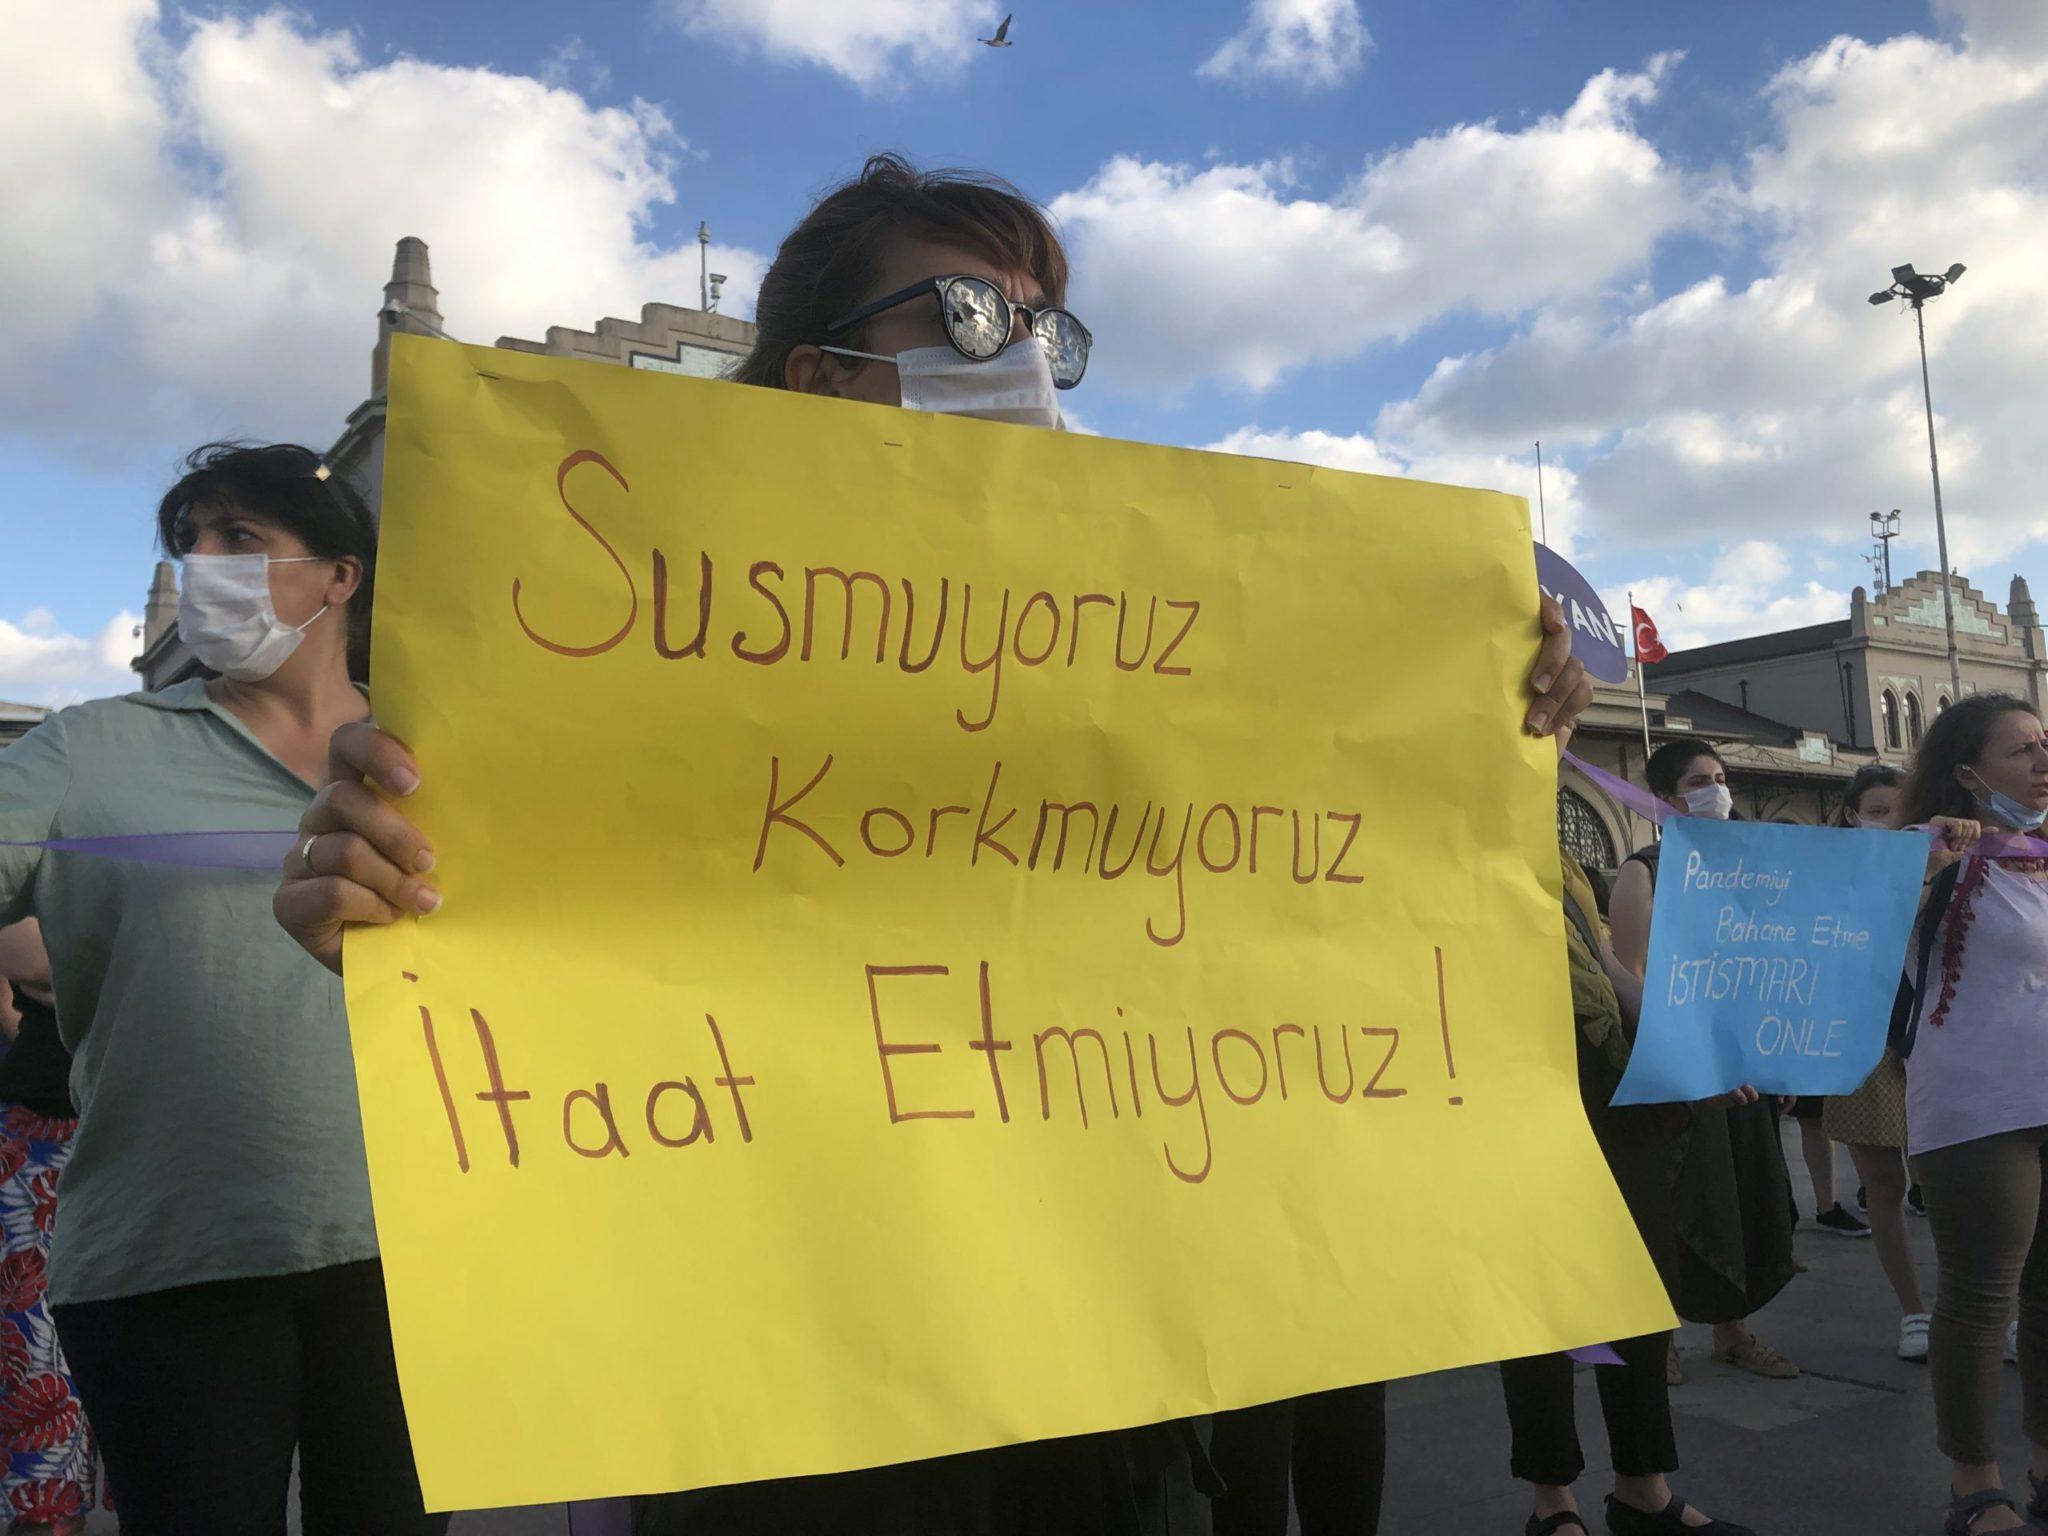 Susmuyoruz
Korkmuyoruz
İtaat Etmiyoruz!
YAN
Pandemiyi
Bahane Etme
İSTİSMARI
ÖNLE